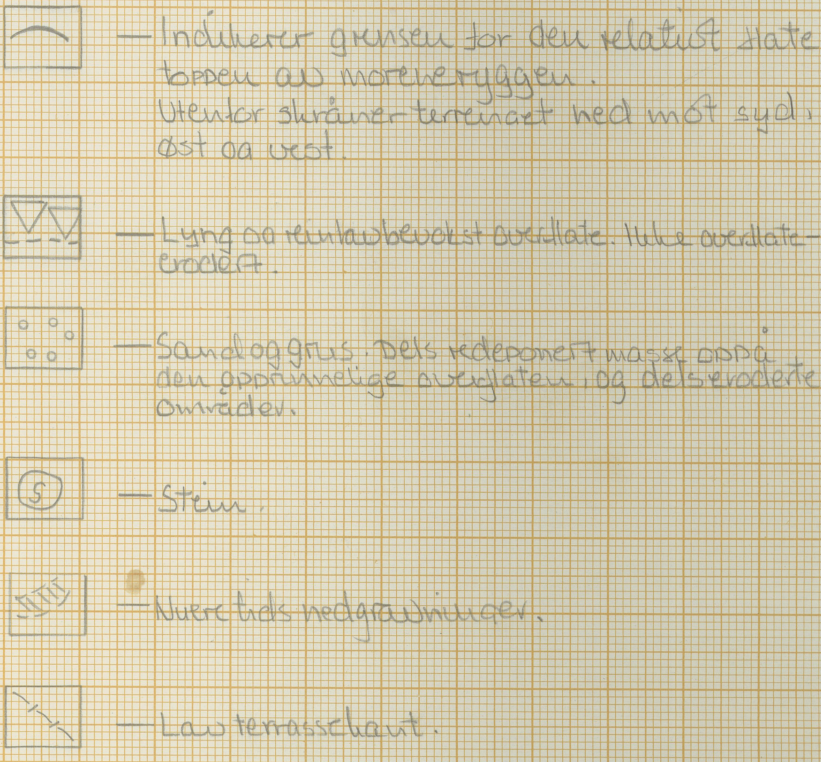 — Indikerer grensen for den relativt flate
toppen av moreneryggen.
Utenfor skråner terrenget ned mot syd,
øst og vest.
— Lyng og reinlavbevokst overflate. Ikke overflate-
erodert.
— Sand og grus. Dels redeponert masse oppå
den opprinnelige overflaten, og dels eroderte
områder.
S — Stein.
— Nyere tids nedgravninger.
— Lav terrassekant.